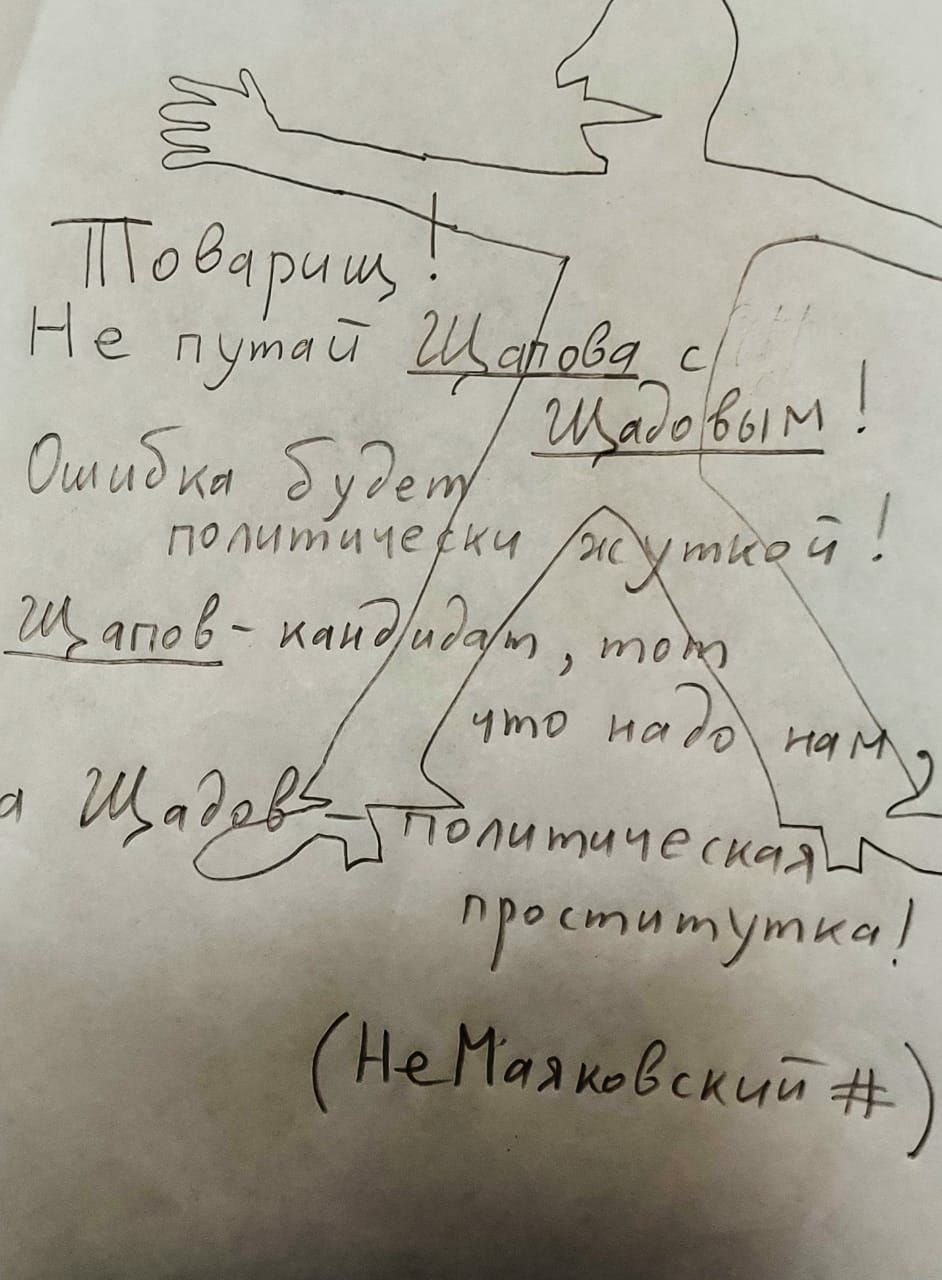 Товарищ!
Не путай Щапова с
Щадовым!
Ошибка будет
политически жуткой!
Щапов - кандидат, тот
что надо нам,
а Щадов - политическая
проститутка!
(НеМаяковский #)